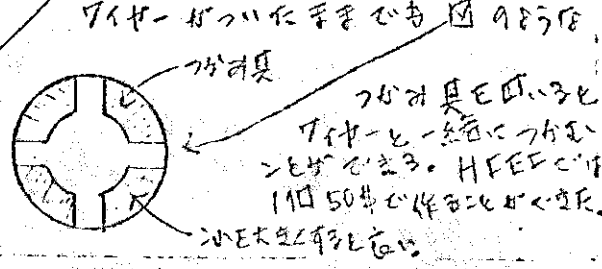 ワイヤーがついたままでも図のような
つかみ具
つかみ具を用いると
ワイヤーと一緒につかむ
ことができる。HFEFでは
1個50$で作ることができた。
を大きくすると良い